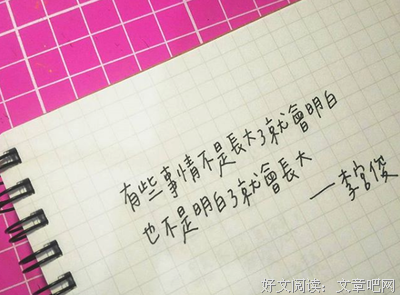 有些事情不是長大了就會明白
也不是明白了就會長大
—李宮俊
好文阅读：文章吧网